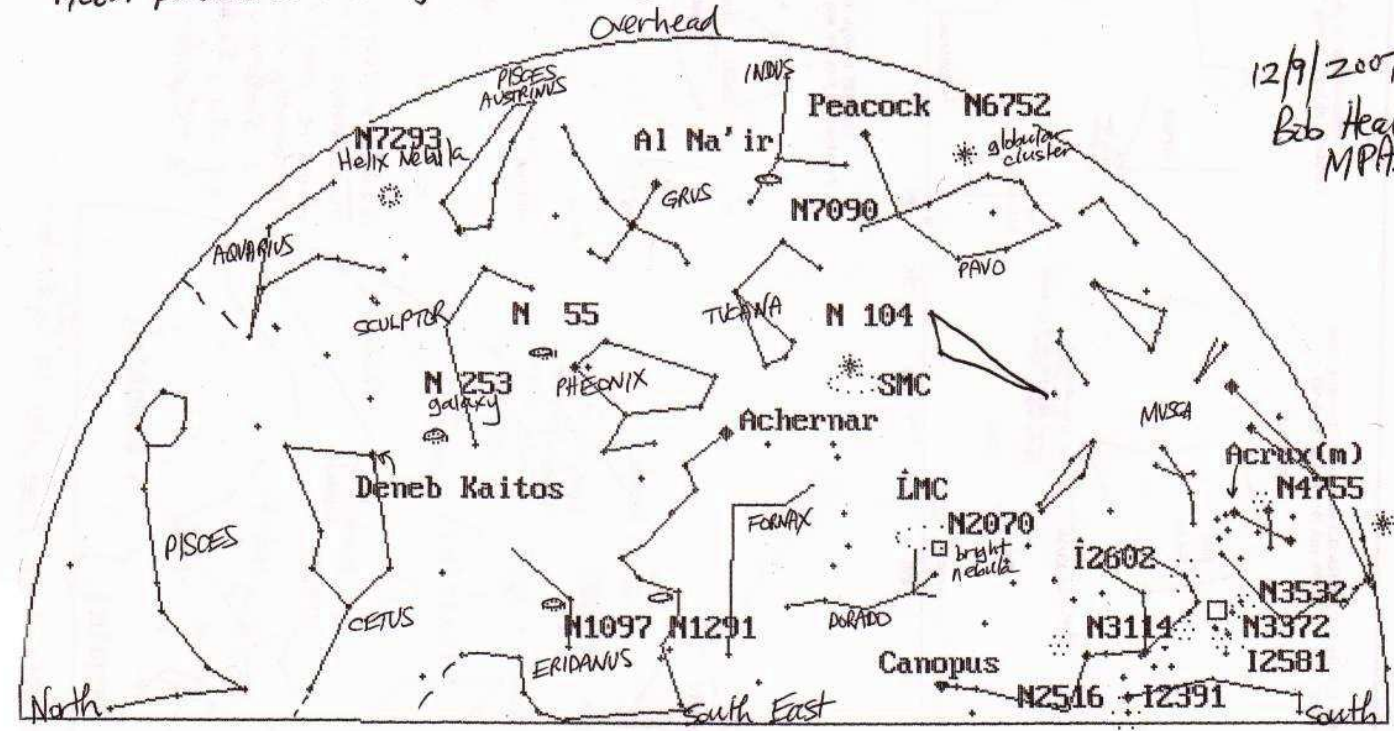 Overhead
12/9/2007
Bob
PISCES
AUSTRINUS
INDUS
Peacock
N6752
globular
cluster
N7293
Helix Nebula
Al Na'ir
GRUS
N7090
AQUARIUS
PAVO
SCULPTOR
N 55
TUCANA
N 104
N 253
galaxy
PHEONIX
SMC
MUSCA
Achernar
Acrux(m)
Deneb Kaitos
LMC
N4755
FORNAX
N2070
bright
nebula
I2602
PISCES
N3532
CETUS
N1097
N1291
DORADO
N3114
N3372
ERIDANUS
Canopus
I2581
N2516
I2391
North
South East
South